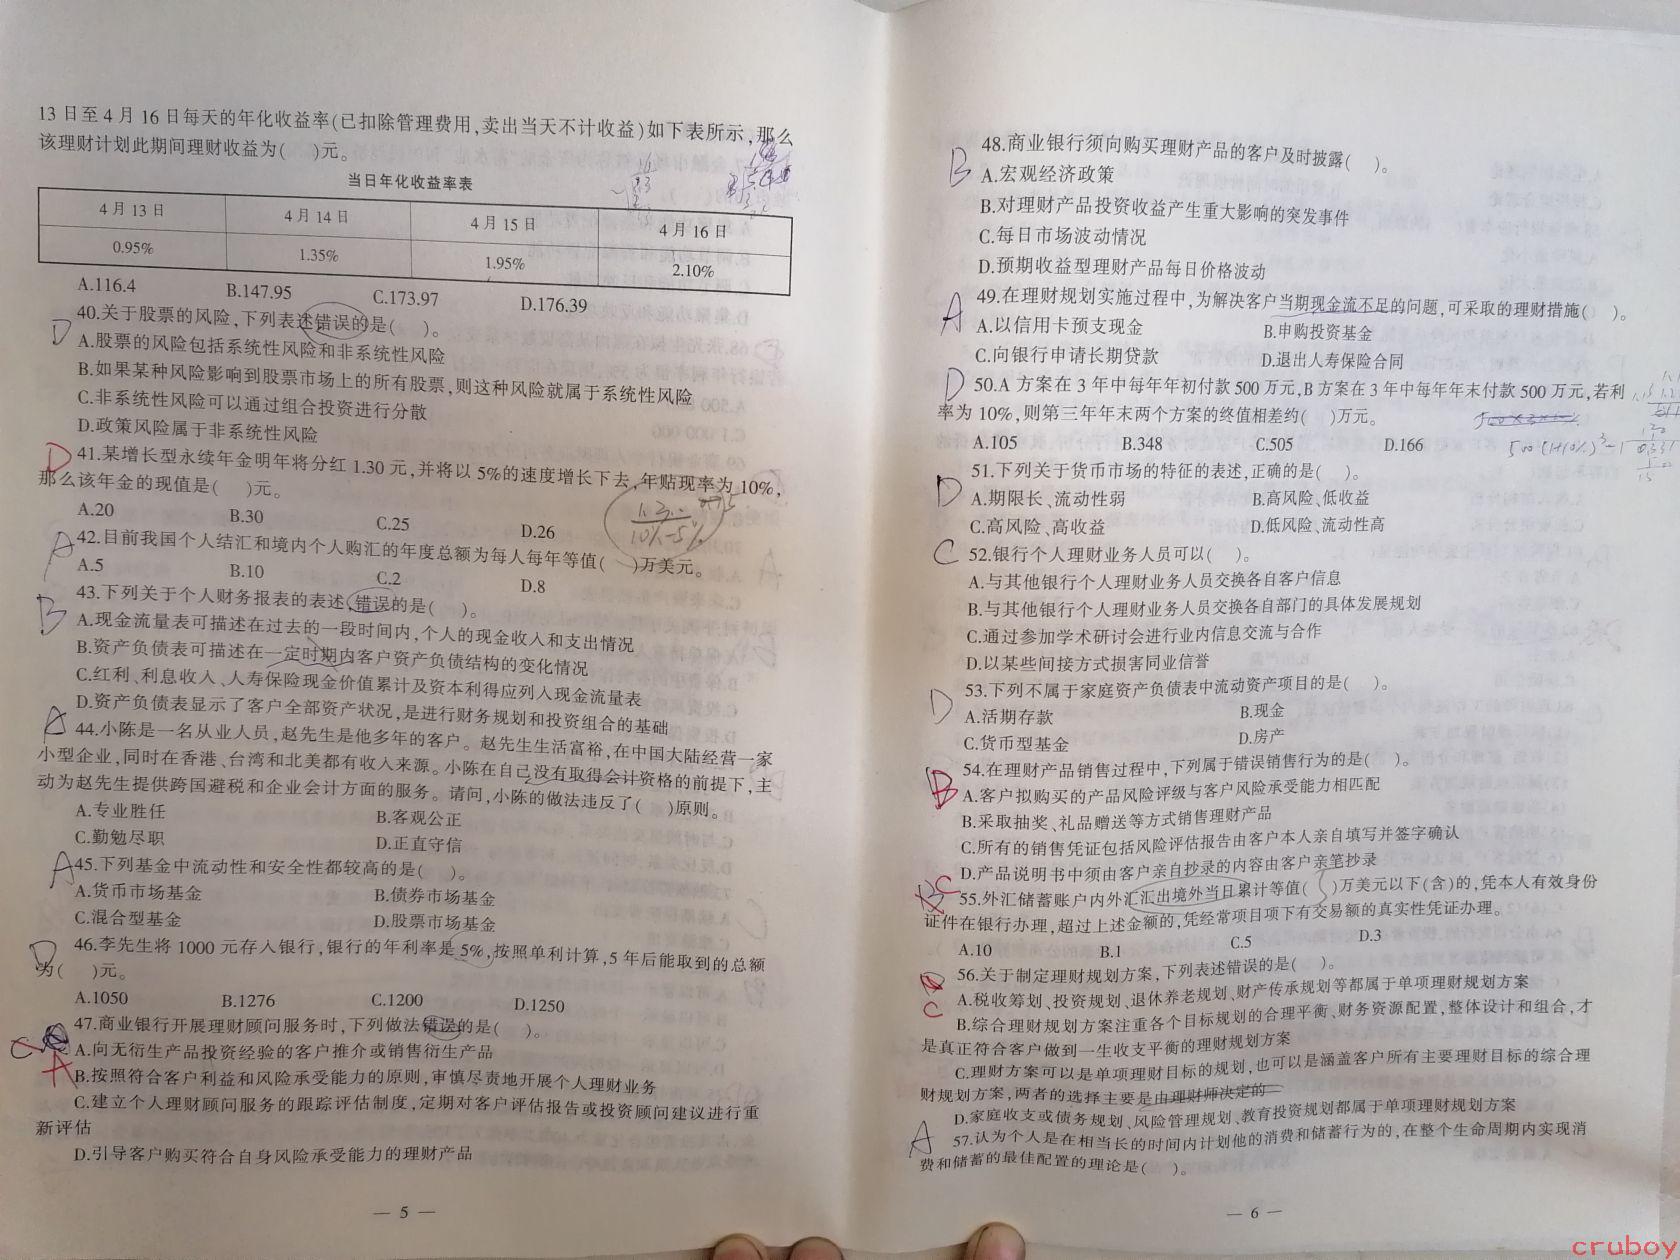 13日至4月16日每天的年化收益率(已扣除管理费用,卖出当天不计收益)如下表所示,那么
该理财计划此期间理财收益为( )元。
当日年化收益率表
4月13日 4月14日 4月15日 4月16日
0.95% 1.35% 1.95% 2.10%
A.116.4 B.147.95 C.173.97 D.176.39
40.关于股票的风险,下列表述错误的是( )。
D
A.股票的风险包括系统性风险和非系统性风险
B.如果某种风险影响到股票市场上的所有股票,则这种风险就属于系统性风险
C.非系统性风险可以通过组合投资进行分散
D.政策风险属于非系统性风险
D
41.某增长型永续年金明年将分红1.30元,并将以5%的速度增长下去,年贴现率为10%,
那么该年金的现值是( )元。
A.20 B.30 C.25 D.26
10%-5%
A
42.目前我国个人结汇和境内个人购汇的年度总额为每人每年等值( )万美元。
A.5 B.10 C.2 D.8
43.下列关于个人财务报表的表述,错误的是( )。
B
A.现金流量表可描述在过去的一段时间内,个人的现金收入和支出情况
B.资产负债表可描述在一定时期内客户资产负债结构的变化情况
C.红利、利息收入、人寿保险现金价值累计及资本利得应列入现金流量表
D.资产负债表显示了客户全部资产状况,是进行财务规划和投资组合的基础
A
44.小陈是一名从业人员,赵先生是他多年的客户。赵先生生活富裕,在中国大陆经营一家
小型企业,同时在香港、台湾和北美都有收入来源。小陈在自己没有取得会计资格的前提下,主
动为赵先生提供跨国避税和企业会计方面的服务。请问,小陈的做法违反了( )原则。
A.专业胜任 B.客观公正
C.勤勉尽职 D.正直守信
A
45.下列基金中流动性和安全性都较高的是( )。
A.货币市场基金 B.债券市场基金
C.混合型基金 D.股票市场基金
D
46.李先生将1000元存入银行,银行的年利率是5%,按照单利计算,5年后能取到的总额
为( )元。
A.1050 B.1276 C.1200 D.1250
47.商业银行开展理财顾问服务时,下列做法错误的是( )。
C
A.向无衍生产品投资经验的客户推介或销售衍生产品
A
B.按照符合客户利益和风险承受能力的原则,审慎尽责地开展个人理财业务
C.建立个人理财顾问服务的跟踪评估制度,定期对客户评估报告或投资顾问建议进行重
新评估
D.引导客户购买符合自身风险承受能力的理财产品
— 5 —
48.商业银行须向购买理财产品的客户及时披露( )。
B
A.宏观经济政策
B.对理财产品投资收益产生重大影响的突发事件
C.每日市场波动情况
D.预期收益型理财产品每日价格波动
49.在理财规划实施过程中,为解决客户当期现金流不足的问题,可采取的理财措施( )。
A
A.以信用卡预支现金 B.申购投资基金
C.向银行申请长期贷款 D.退出人寿保险合同
D
50.A方案在3年中每年年初付款500万元,B方案在3年中每年年末付款500万元,若利
率为10%,则第三年年末两个方案的终值相差约( )万元。
A.105 B.348 C.505 D.166
500(1+10%)³-1
51.下列关于货币市场的特征的表述,正确的是( )。
D
A.期限长、流动性弱 B.高风险、低收益
C.高风险、高收益 D.低风险、流动性高
C
52.银行个人理财业务人员可以( )。
A.与其他银行个人理财业务人员交换各自客户信息
B.与其他银行个人理财业务人员交换各自部门的具体发展规划
C.通过参加学术研讨会进行业内信息交流与合作
D.以某些间接方式损害同业信誉
53.下列不属于家庭资产负债表中流动资产项目的是( )。
D
A.活期存款 B.现金
C.货币型基金 D.房产
54.在理财产品销售过程中,下列属于错误销售行为的是( )。
B
A.客户拟购买的产品风险评级与客户风险承受能力相匹配
B.采取抽奖、礼品赠送等方式销售理财产品
C.所有的销售凭证包括风险评估报告由客户本人亲自填写并签字确认
D.产品说明书中须由客户亲自抄录的内容由客户亲笔抄录
C
55.外汇储蓄账户内外汇汇出境外当日累计等值( )万美元以下(含)的,凭本人有效身份
证件在银行办理,超过上述金额的,凭经常项目项下有交易额的真实性凭证办理。
A.10 B.1 C.5 D.3
56.关于制定理财规划方案,下列表述错误的是( )。
C
A.税收筹划、投资规划、退休养老规划、财产传承规划等都属于单项理财规划方案
B.综合理财规划方案注重各个目标规划的合理平衡、财务资源配置,整体设计和组合,才
是真正符合客户做到一生收支平衡的理财规划方案
C.理财方案可以是单项理财目标的规划,也可以是涵盖客户所有主要理财目标的综合理
财规划方案,两者的选择主要是由理财师决定的
D.家庭收支或债务规划、风险管理规划、教育投资规划都属于单项理财规划方案
A
57.认为个人是在相当长的时间内计划他的消费和储蓄行为的,在整个生命周期内实现消
费和储蓄的最佳配置的理论是( )。
— 6 —
cruboy